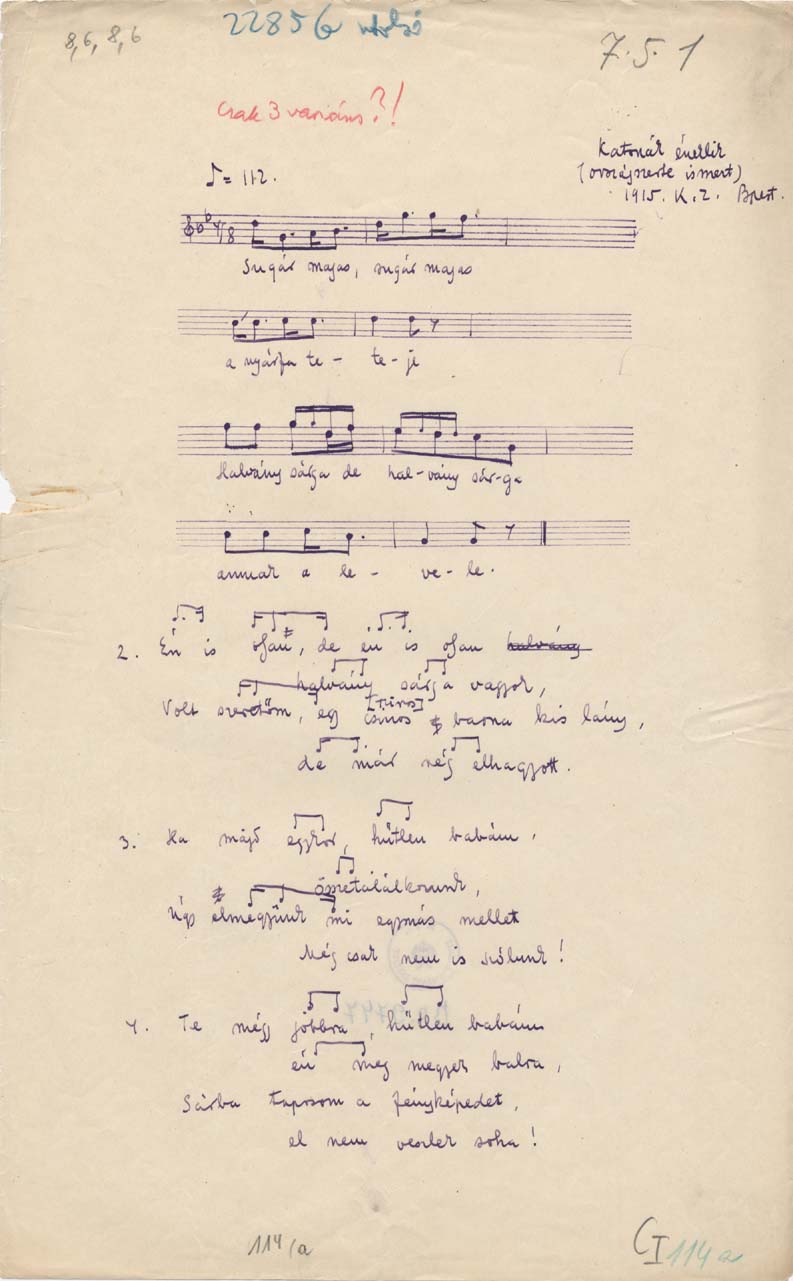 8, 6, 8, 6
22856 utolsó
7. 5. 1
Csak 3 variáns?!
Katonák éneklik
(országszerte ismert)
1915. K. Z. Bpest.
♪= 112.
4/8
Sugár magas, sugár magas
a nyárfa te - te - je
Halvány sárga de hal - vány sár - ga
annak a le - ve - le.
2. Én is olyan, de én is olyan halvány
halvány sárga vagyok,
[túros]
Volt szeretőm, egy csinos barna kis lány,
de már rég elhagyott.
3. Ha majd egykor, hűtlen babám,
össze találkozunk,
úgy elmegyünk mi egymás mellet
Még csak nem is szólunk!
4. Te mégy jobbra, hűtlen babám
én meg megyek balra,
Sárba taposom a fényképedet,
el nem veszlek soha!
114/a
C I 114a